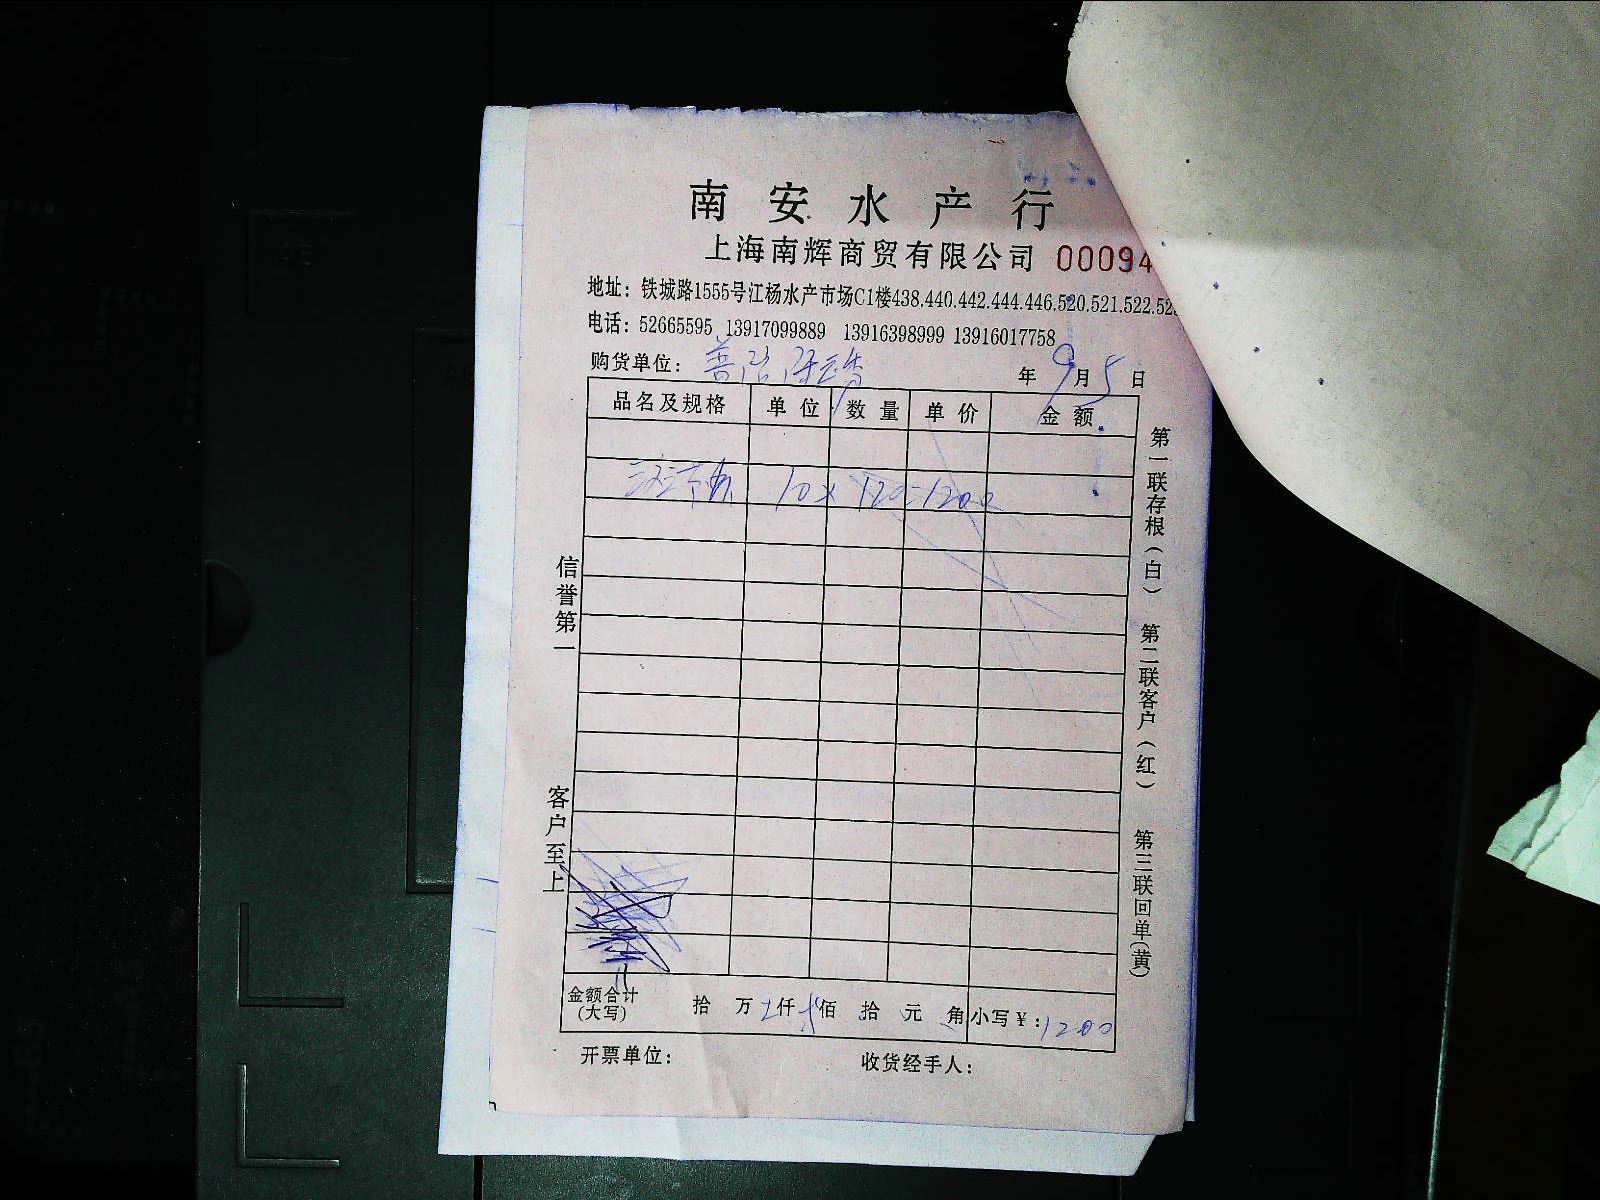 南安水产行
上海南辉商贸有限公司 00094
地址：铁城路1555号江杨水产市场C1楼438.440.442.444.446.520.521.522.52
电话：52665595 13917099889 13916398999 13916017758
购货单位：
年9月5日
品名及规格 单位 数量 单价 金额
10x 120=1200
金额合计(大写) 拾 万 仟 佰 拾 元 角 小写￥:1200
开票单位： 收货经手人：
信誉第一
客户至上
第一联存根（白）
第二联客户（红）
第三联回单(黄)